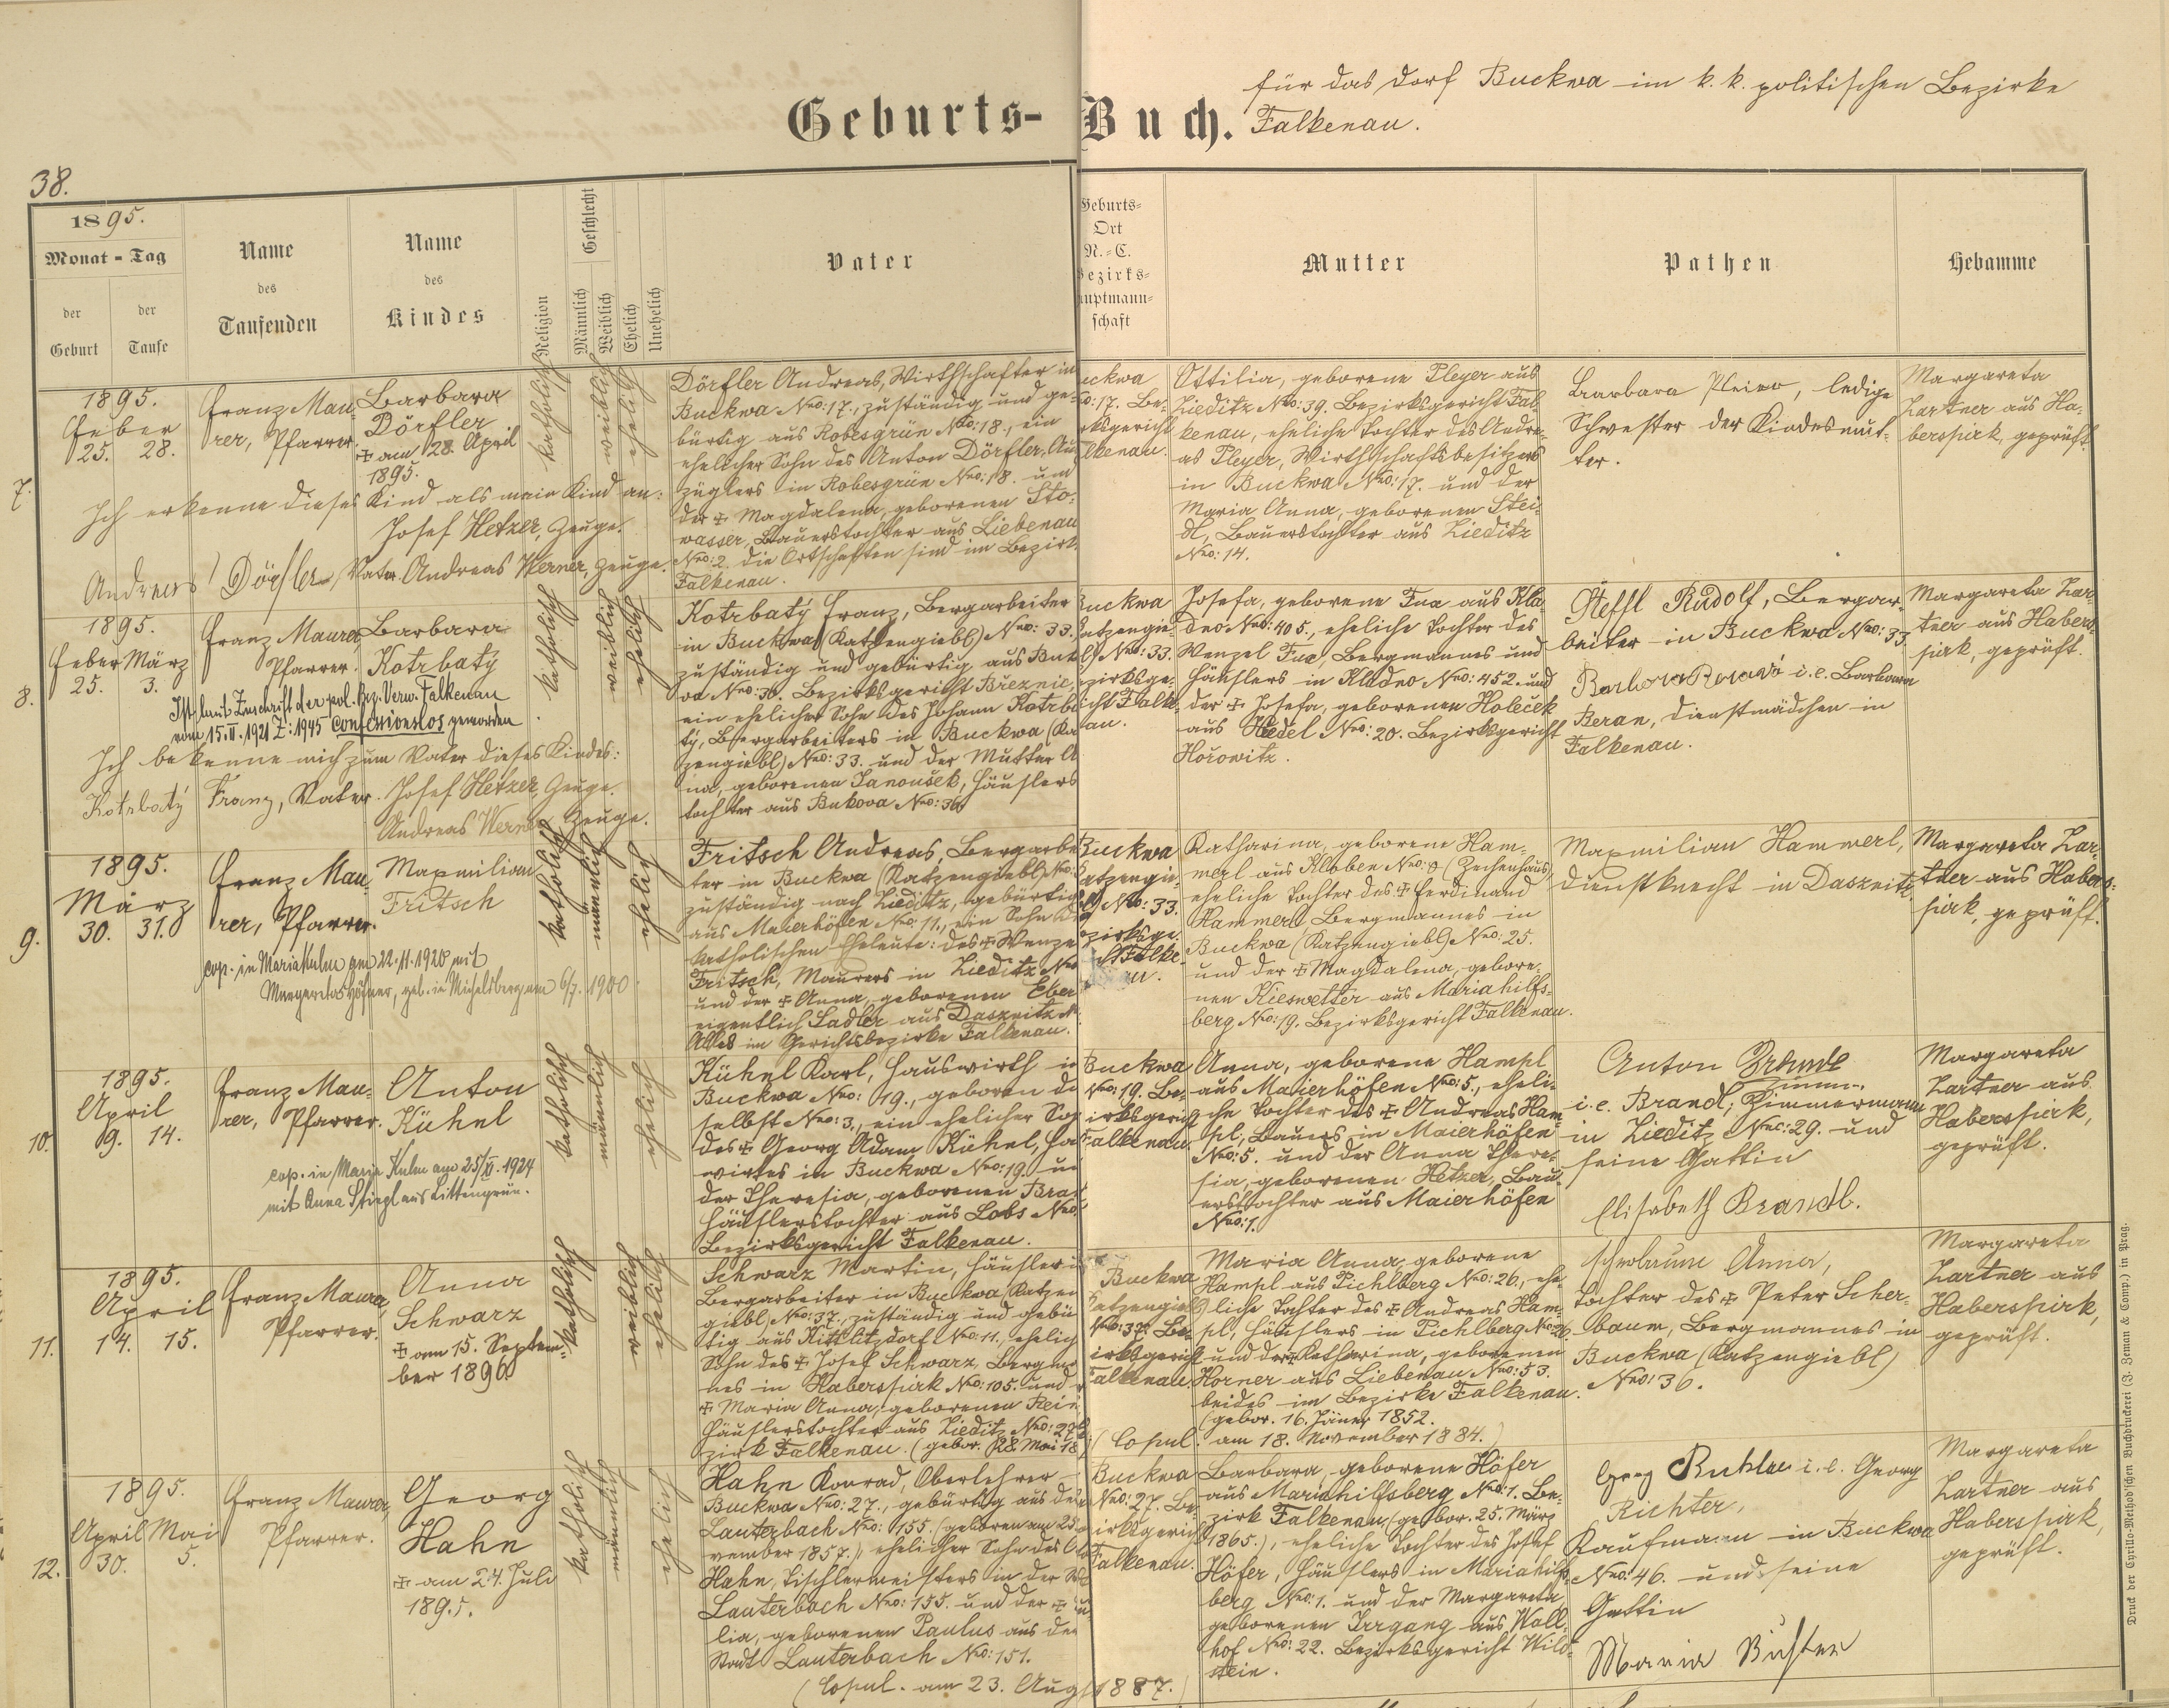 für das Dorf Buckwa im k. k. politischen Bezirke
Geburts-Buch. Falkenau.
38.
1895.
Monat - Tag
der Geburt
der Taufe
Name des Taufenden
Name des Kindes
Religion
Geschlecht
Männlich
Weiblich
Ehelich
Unehelich
Vater
Geburts-
Ort
N.-C.
Bezirks-
hauptmann-
schaft
Mutter
Pathen
Hebamme
7.
1895.
Feber
25. 28.
Franz Mau-
rer, Pfarrer.
Barbara
Dörfler
✠ am 28. April
1895.
katholisch
weiblich
ehelich
Ich erkenne dieses Kind als mein Kind an:
Josef Hetzer, Zeuge.
Andreas Dörfler Vater. Andreas Werner, Zeuge.
Dörfler Andreas, Wirthschafter in
Buckwa Nro: 17., zuständig und ge-
bürtig aus Robesgrün Nro: 18., ein
ehelicher Sohn des Anton Dörfler, Aus
züglers in Robesgrün Nro: 18. und
der ✠ Magdalena, geborenen Sto-
wasser, Bauerstochter aus Liebenau
Nro: 2. Die Ortschaften sind im Bezirk
Falkenau.
uckwa
o: 17. Be-
rksgericht
lkenau.
Ottilia, geborene Pleyer aus
Zieditz Nro: 39. Bezirksgericht Fal-
kenau, eheliche Tochter des Andre-
as Pleyer, Wirthschaftsbesitzers
in Buckwa Nro: 17. und der
Maria Anna, geborenen Stei-
dl, Bauerstochter aus Zieditz
Nro: 14.
Barbara, ledige
Schwester der Kindesmut-
ter.
Margareta
Zartner aus Ha-
berspirk, geprüft.
8.
1895.
Feber März
25. 3.
Franz Maurer,
Pfarrer.
Barbara
Kotrbatý
katholisch
weiblich
ehelich
Ist laut Zuschrift der pol. Bez. Verw. Falkenau
vom 15. II. 1921 Z: 1945 confessionslos geworden
Ich bekenne mich zum Vater dieses Kindes:
Kotrbatý Franz, Vater. Josef Hetzer, Zeuge.
Andreas Werner Zeuge.
Kotrbatý Franz, Bergarbeiter
in Buckwa (Katzengiebl) Nro: 33.
zuständig und gebürtig aus Buk
va Nro: 36. Bezirksgericht Březnic,
ein ehelicher Sohn des Johann Kotrba
tý, Bergarbeiters in Buckwa (Ka
zengiebl) Nro: 33. und der Mutter A
na, geborenen Janoušek, Häuslers
tochter aus Bukova Nro: 36
Buckwa
atzengie-
bl) Nro: 33.
zirksge-
icht Falke-
au.
Josefa, geborene Fux aus Kla-
dno Nro: 405., eheliche Tochter des
Wenzel Fux, Bergmannes und
Häuslers in Kladno Nro: 452. und
der ✠ Josefa, geborenen Holeček
aus Nro: 20. Bezirksgericht
Hořowitz.
Steffl Rudolf, Bergar-
beiter in Buckwa Nro: 33
i. e. Barbara
Beran, Dienstmädchen in
Falkenau.
Margareta Zar-
tner aus Habers-
pirk, geprüft.
9.
1895.
März
30. 31.
Franz Mau-
rer, Pfarrer.
Maxmilian
Fritsch
katholisch
männlich
ehelich
cop. in Maria Kulm am 22. 11. 1920 mit
Margareta Höfner, geb. in Michelsberg am 6/7. 1900
Fritsch Andreas, Bergarbei
ter in Buckwa (Katzengiebl) Nro.
zuständig nach Zieditz, gebürtig
aus Maierhöfen Nro: 11., ein Sohn de
katholischen Eheleute: des ✠ Wenze
Fritsch, Maurers in Zieditz Nro
und der ✠ Anna, geborenen Eber
eigentlich Sadler aus Dasznitz N
Alles im Gerichtsbezirke Falkenau.
Buckwa
atzengie-
bl) Nro: 33.
zirksge-
Falke-
au.
Katharina, geborene Ham-
merl aus Kloben Nro: 8 (Zechenhaus)
eheliche Tochter des ✠ Ferdinand
Hammerl Bergmannes in
Buckwa (Katzengiebl) Nro: 25.
und der ✠ Magdalena, gebore-
nen Kieswetter aus Mariahilfs-
berg Nro: 19. Bezirksgericht Falkenau.
Maxmilian Hammerl,
Dienstknecht in Dasznitz.
Margareta Zar-
tner aus Habers-
pirk, geprüft.
10.
1895.
April
9. 14.
Franz Mau-
rer, Pfarrer.
Anton
Kühnl
katholisch
männlich
ehelich
cop. in Maria Kulm am 25/XI. 1924
mit Anna Stingl aus Littengrün.
Kühnl Karl, Hauswirth in
Buckwa Nro: 19., geboren da
selbst Nro: 3., ein ehelicher Soh
des ✠ Georg Adam Kühnl, Ha
wirtes in Buckwa Nro: 19 u
der Theresia, geborenen Bra
Häuslerstochter aus Lobs Nro:
Bezirksgericht Falkenau.
Buckwa
Nro: 19. Be-
irksgericht
Falkenau.
Anna, geborene Hampl
aus Maierhöfen Nro: 5., eheli-
che Tochter des ✠ Andreas Ham-
pl, Bauers in Maierhöfen
Nro: 5. und der Anna There-
sia, geborenen Hetzer, Bau-
erstochter aus Maierhöfen
Nro: 1.
Anton
i. e. Brandl, Zimmermann
in Zieditz Nro: 29. und
seine Gattin
Elisabeth Brandl.
Margareta
Zartner aus
Haberspirk,
geprüft.
11.
1895.
April
14. 15.
Franz Maurer,
Pfarrer.
Anna
Schwarz
✠ am 15. Septem-
ber 1896
katholisch
weiblich
ehelich
Schwarz Martin, Häusler u
Bergarbeiter in Buckwa (Katzen
giebl) Nro: 37., zuständig und gebür
tig aus Kittlitzdorf Nro: 11., ehelich
Sohn des ✠ Josef Schwarz, Bergma
nes in Haberspirk Nro: 105. und
✠ Maria Anna, geborenen Rein
Häuslerstochter aus Zieditz Nro: 27
zirk Falkenau. (gebor. 28. Mai 18
Buckwa
atzengiebl)
Nro: 37. Be-
irksgericht
Falkenau.
Maria Anna, geborene
Hampl aus Pichlberg Nro: 26., ehe-
liche Tochter des ✠ Andreas Ham-
pl, Häuslers in Pichlberg Nro: 26
und der ✠ Katharina, geborenen
Horner aus Liebenau Nro: 53.
beides im Bezirke Falkenau.
(gebor. 16. Jäner 1852.
(Copul. am 18. November 1884.)
Anna,
Tochter des ✠ Peter Scher-
baum, Bergmannes in
Buckwa (Katzengiebl)
Nro: 36.
Margareta
Zartner aus
Haberspirk,
geprüft.
12.
1895.
April Mai
30. 5.
Franz Maurer,
Pfarrer.
Georg
Hahn
✠ am 24. Juli
1895.
katholisch
männlich
ehelich
Hahn Konrad, Oberlehrer
Buckwa Nro: 27., gebürtig aus der
Lauterbach Nro: 155. (geboren am 25
vember 1857.), ehelicher Sohn des
Hahn, Tischlermeisters in der
Lauterbach Nro: 155. und der ✠
lia, geborenen Paulus aus der
Stadt Lauterbach Nro: 151.
(Copul. am 23. Aug 1887.)
Buckwa
Nro: 27. Be-
irksgericht
Falkenau.
Barbara, geborene Höfer
aus Mariahilfsberg Nro: 1. Be-
zirk Falkenau, (gebor. 25. März
1865.), eheliche Tochter des Josef
Höfer, Häuslers in Mariahilfs-
berg Nro: 1. und der Margareta
geborenen Irrgang aus Wall-
hof Nro: 22. Bezirksgericht Wild-
stein.
Georg i. e. Georg
Richter,
Kaufmann in Buckwa
Nro: 46. und seine
Gattin
Maria Richter
Margareta
Zartner aus
Haberspirk,
geprüft.
Druck der Cyrillo-Method'schen Buchdruckerei (J. Zeman & Comp.) in Prag.